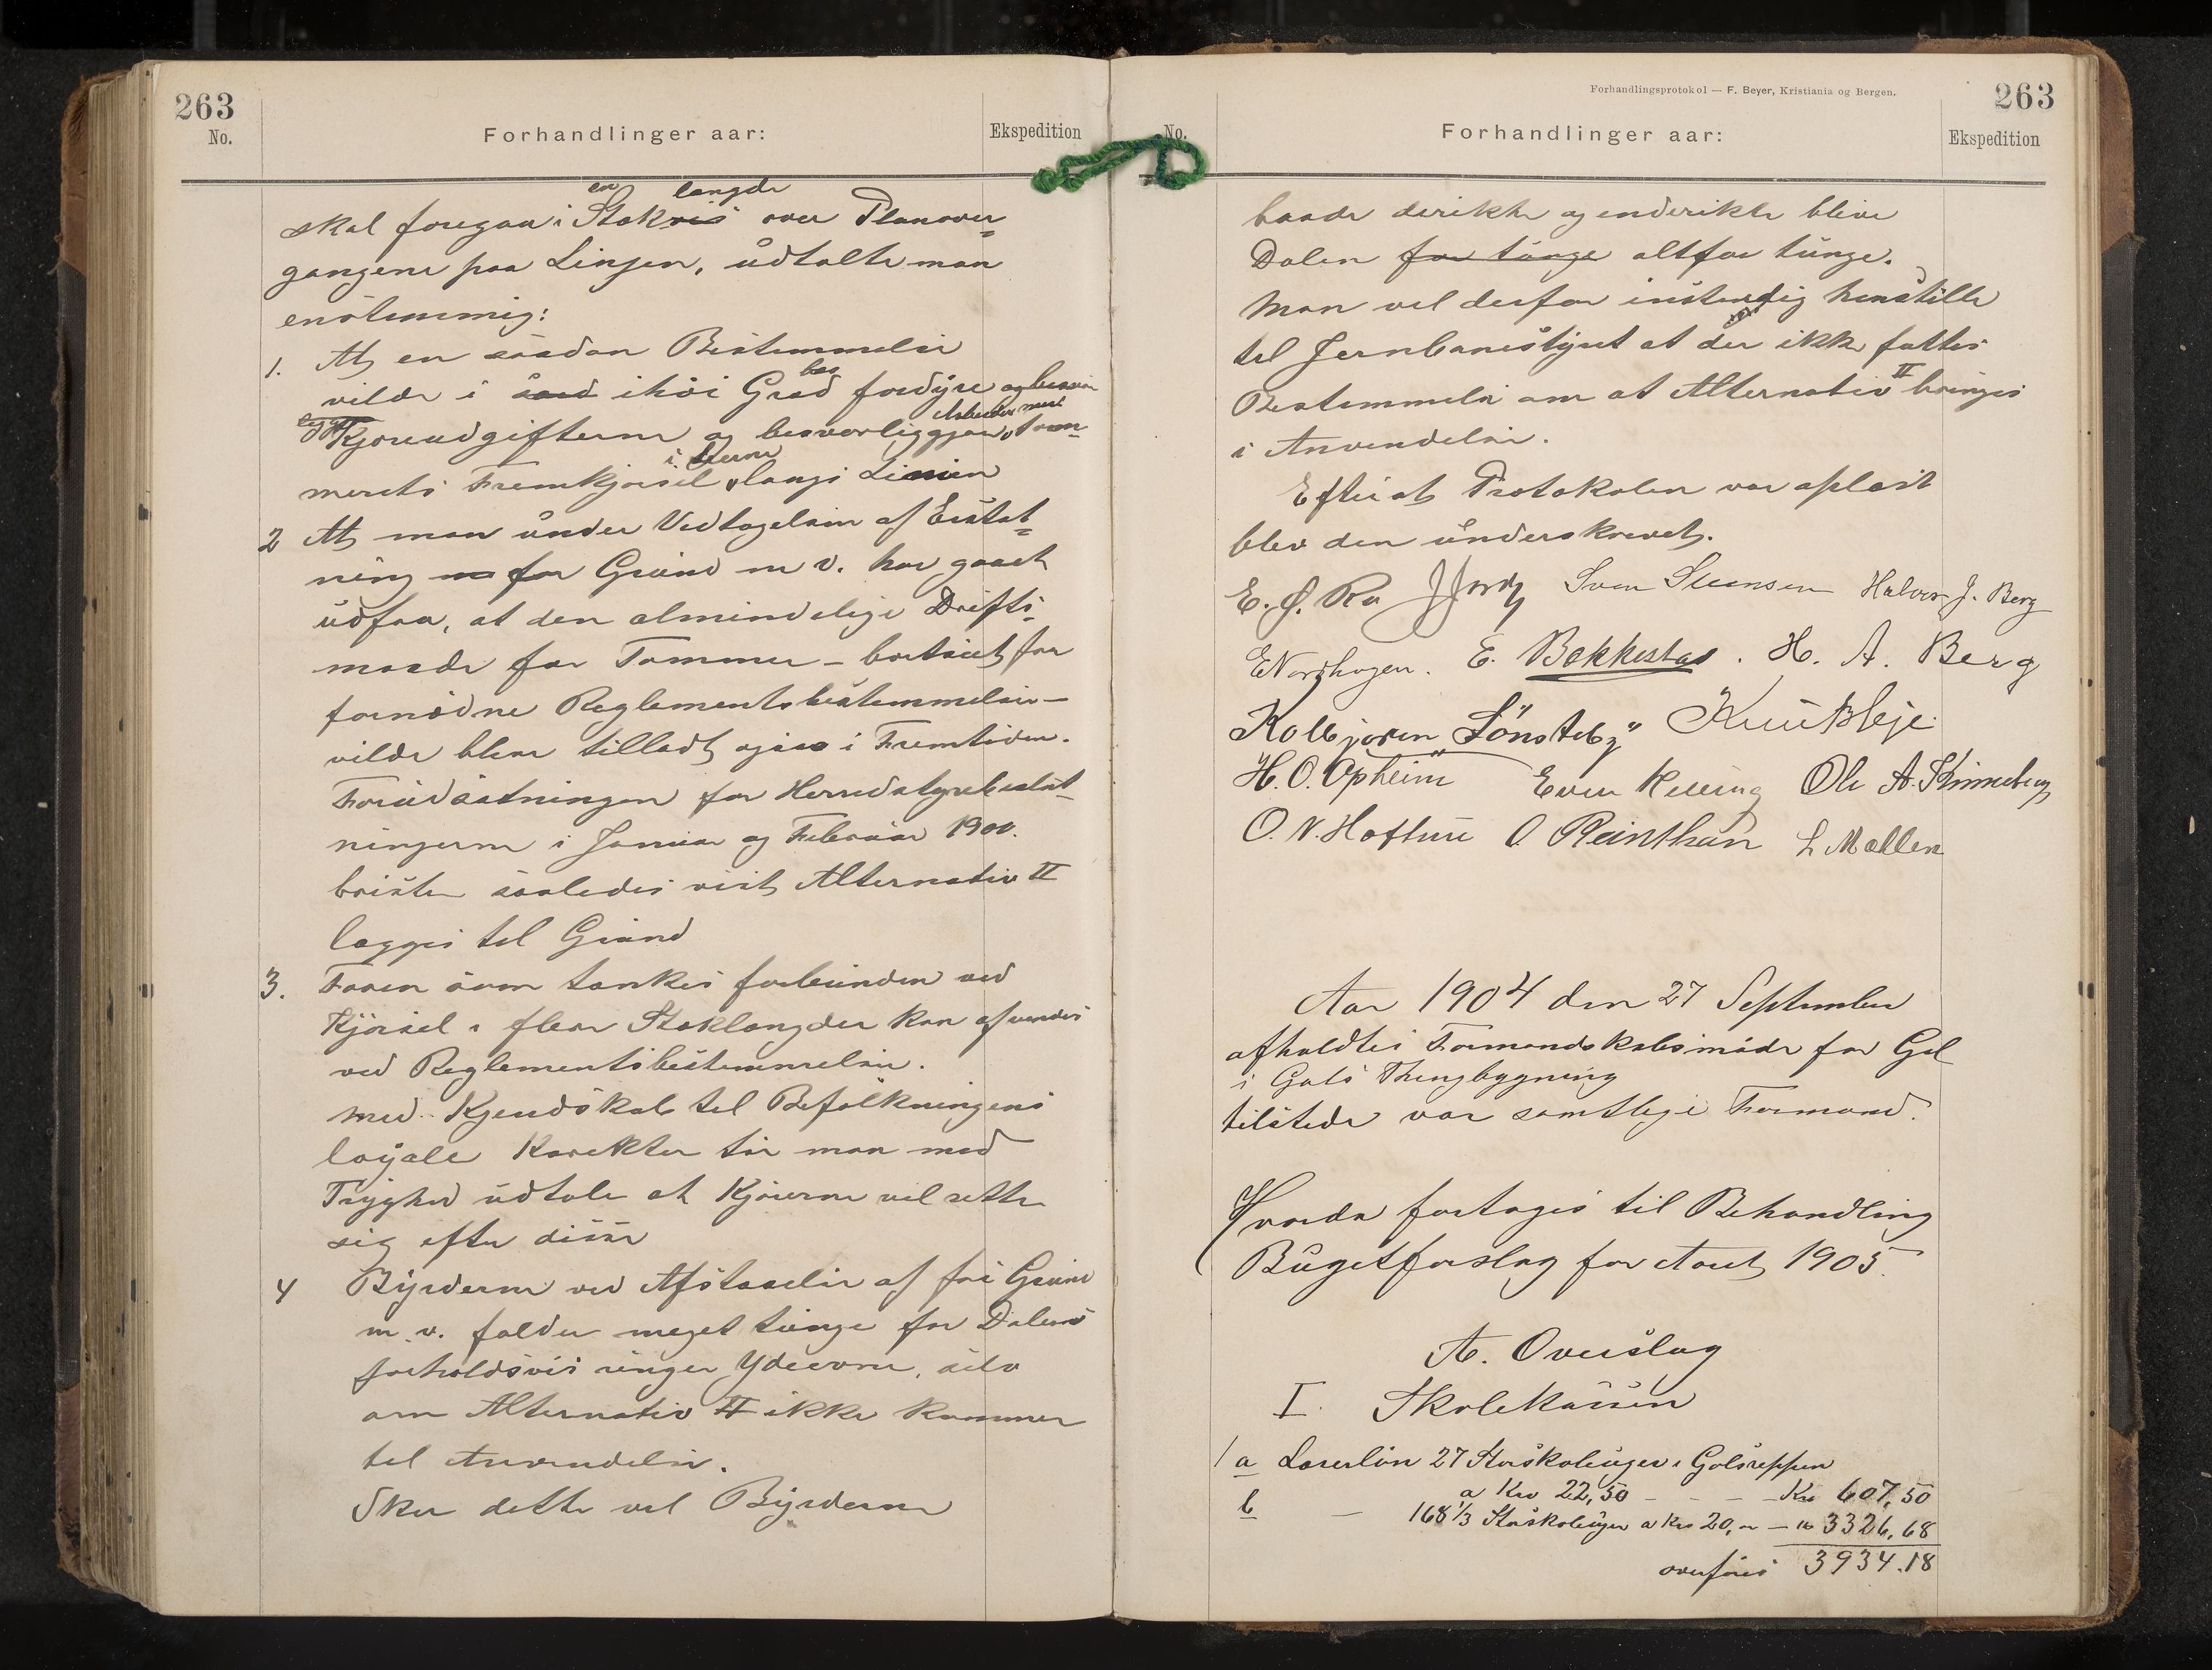 263
No.
Forhandlinger aar:
Ekspedition
en længde
skal foregaa i Stokvis over Planover=
gangene paa Linjen, udtalte man
enstemmig:
1. At en saadan Bestemmelse
vilde i saad ihøi Grad fordyre og besvær
Kjøreudgifterne og besværliggjøre Tøm=
merets Fremkjørsel langs Linien
2 At man under Vedtagelsen af Erstat=
ning for Grund m v. har gaaet
ud fra, at den almindelige Drifts=
maade for Tømmer – bortseet fra
fornødne Reglementsbestemmelser –
vilde blive tilladt ogsaa i Fremtiden.
Forudsætningen for Herredstyrebeslut=
ningerne i Januar og Februar 1900.
brister saaledes vist Alternativ II
lægges til Grund
3. Faren som tænkes forbunden ved
Kjørsel i flere Stoklængder kan afvendes
ved Reglementsbestemmelser.
med Kjendskab til Befolkningens
loyale Karakter tør man med
Tryghed udtale at Kjørerne vil rette
sig efter disse
4 Byrderne ved Afstaaelse af fri Grund
m. v. falder meget tunge for Dalens
forholdsvis ringe Ydeevne, selv
om Alternativ II ikke kommer
til Anvendelse.
Sker dette vil Byrderne
Forhandlingsprotokol — F. Beyer, Kristiania og Bergen.
263
No.
Forhandlinger aar:
Ekspedition
baade direkte og inderikte blive
Dalen for tunge altfor tunge.
Man vil derfor instendig henstille
til Jernbanestyret at der ikke fattes
Bestemmelse om at Alternativ II bringes
i Anvendelse.
Efterat Protokolen var oplæst
blev den underskrevet.
E. G. Ro Sven Svensen Halvor J. Berg
E Nordhagen. E. Bekkestad. H. A. Berg
Kolbjørn Sønsteby Knut Bleje
H. O. Opheim Even Ole A. Skinneberg
O. N. Hoftun O Reinthon L Møllen
Aar 1904 den 27 September
afholdtes Formandskabsmøde for Gol
i Gols Thingbygning
tilstede var samtlige Formænd.
Hvorda fortages til Behandling
Bugetforslag for Aaret 1905.
A. Overslag
I. Skolekassen
1 a Lærerløn 27 Storskoleuger i Golsreppen
a Kr 22,50 – – – Kr 607,50
b – 168 1/3 Storskoleuger a Kr 20,00 – 3326,68
overføres 3934.18